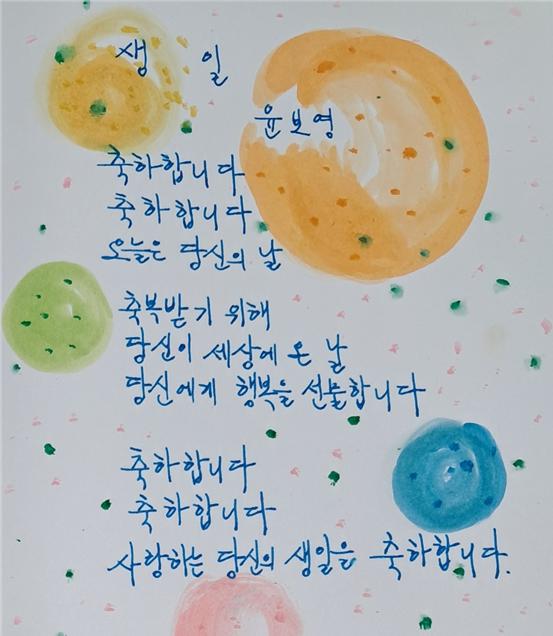 생 일
윤보영
축하합니다
축하합니다
오늘은 당신의 날
축복받기 위해
당신이 세상에 온 날
당신에게 행복을 선물합니다
축하합니다
축하합니다
사랑하는 당신의 생일을 축하합니다.